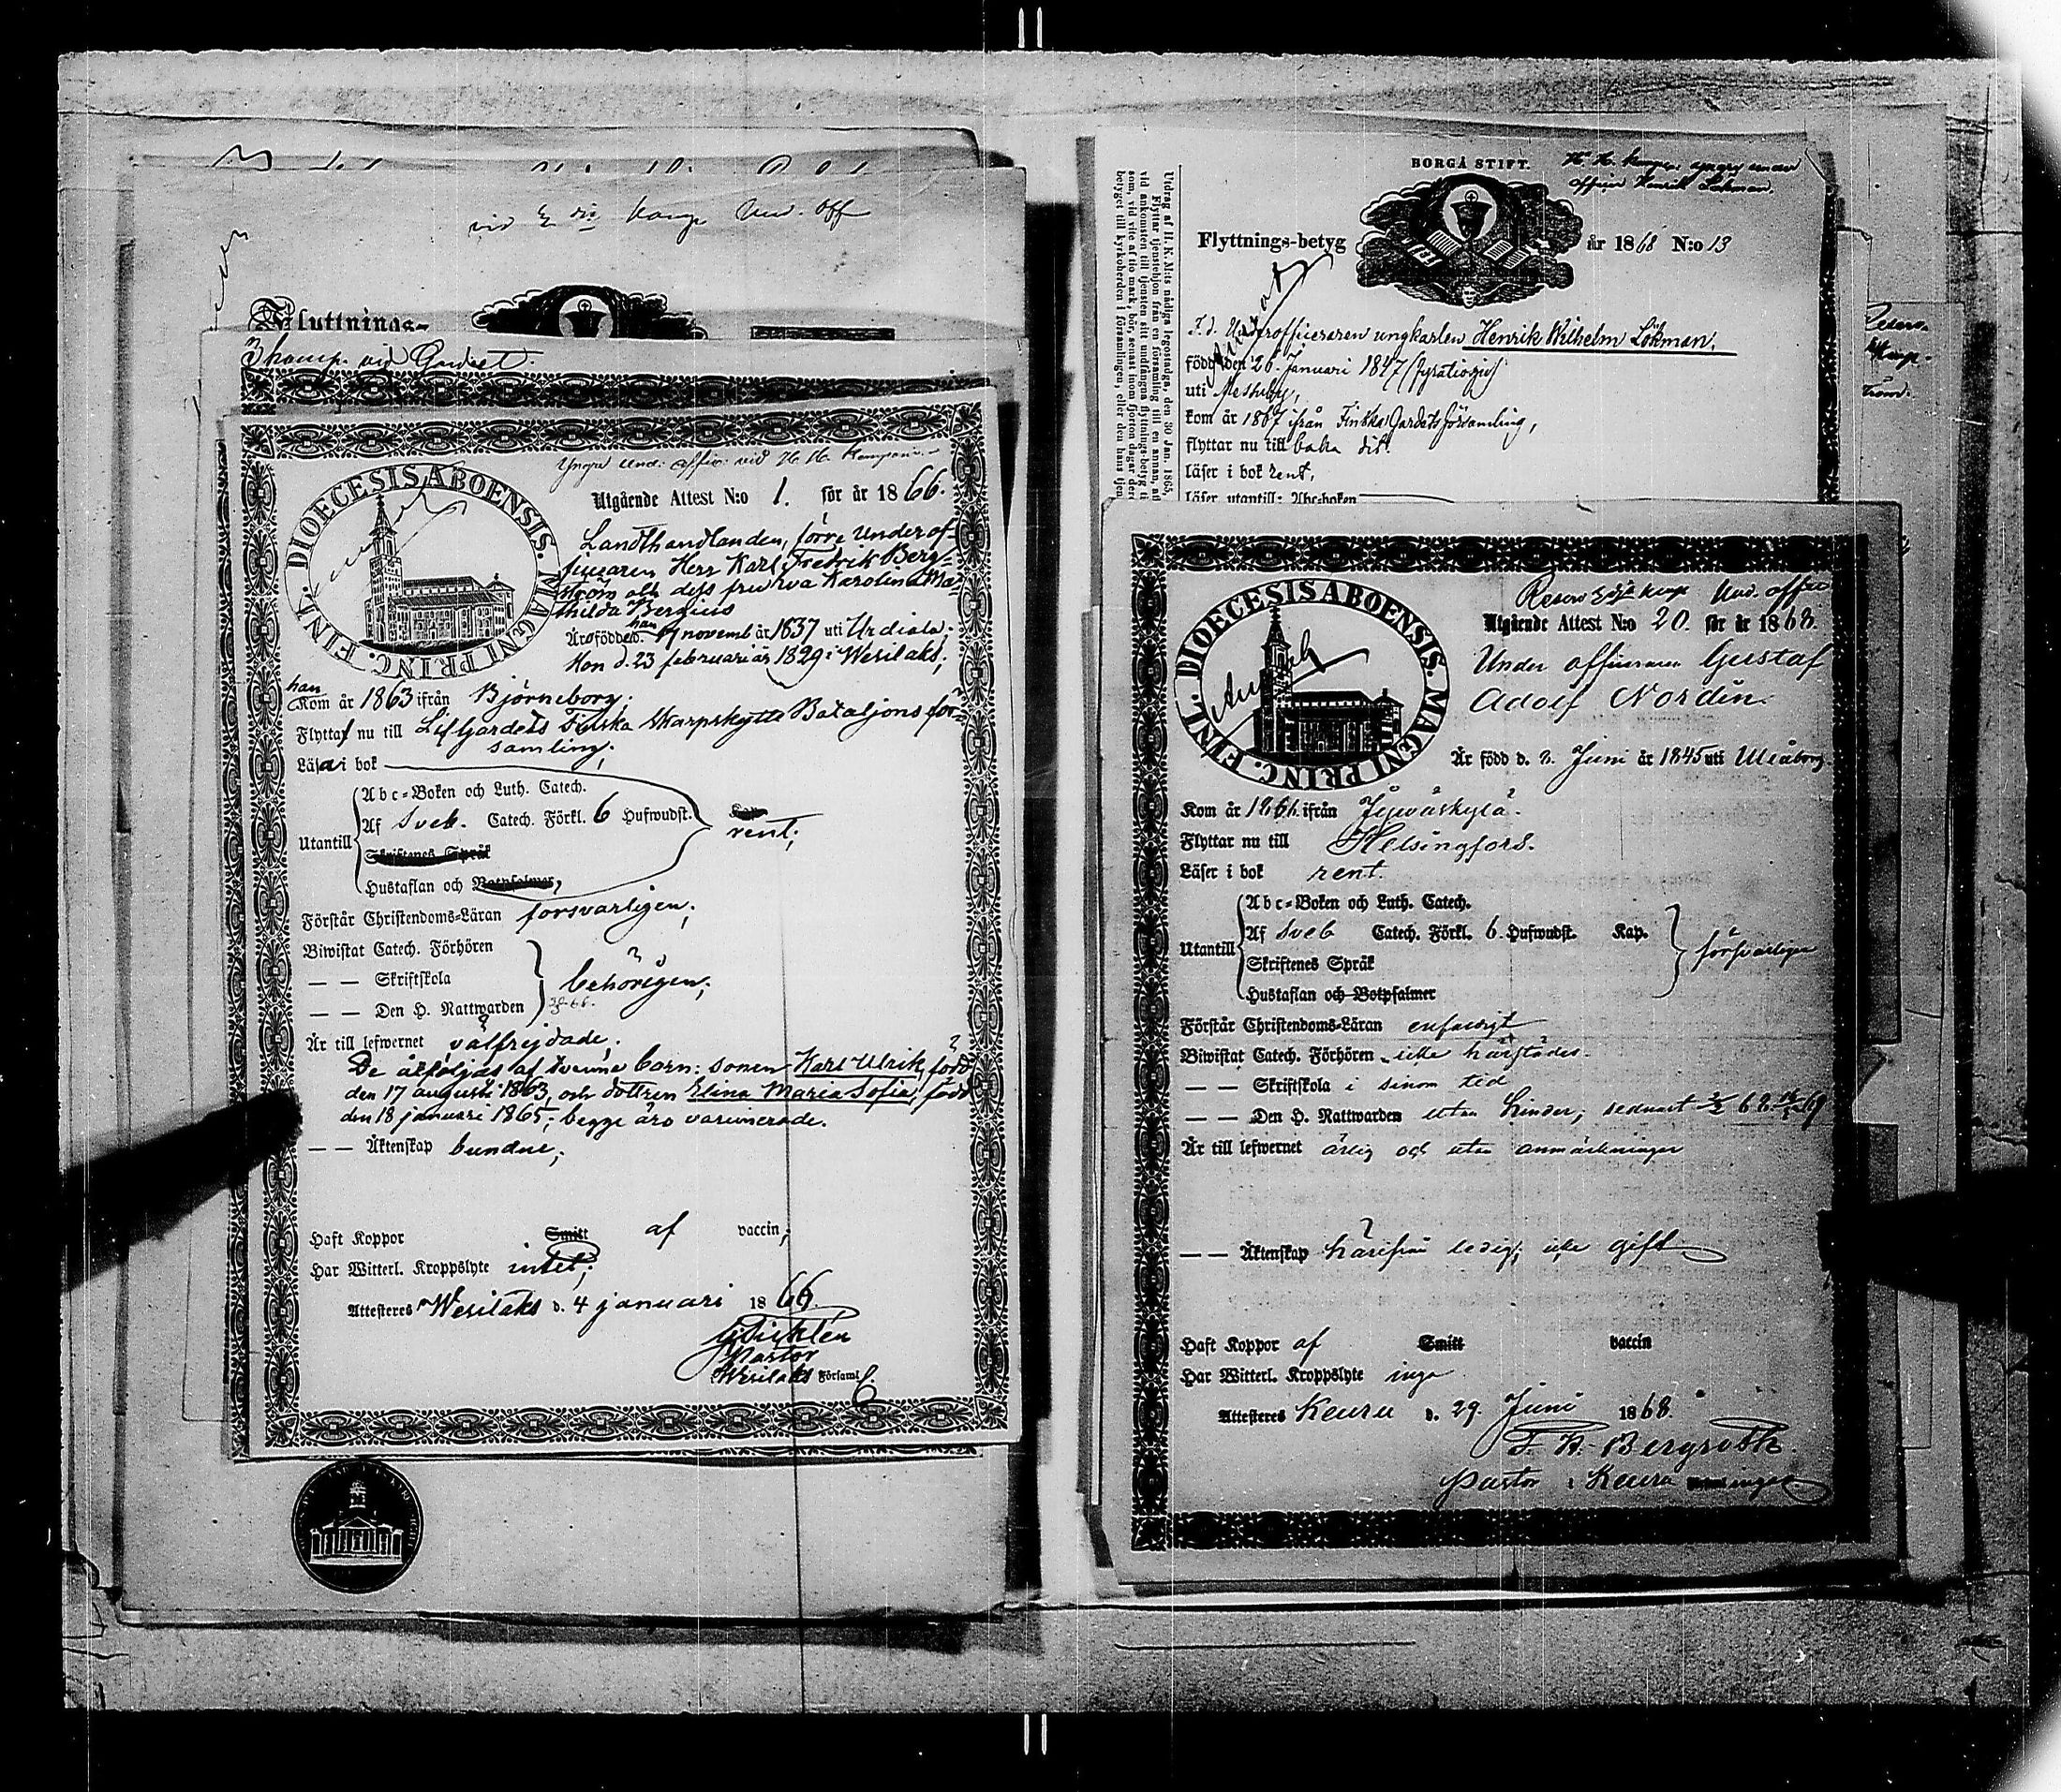 vid
komp. Und. Off
Flyttnings-
3 komp. vid Gardet
Yngre und: offic: vid H. H. Kompani
DIOECESIS ABOENSIS. MAGNI PRINC. FINL.
Utgående Attest N:o 1. för år 1866.
Landthandlanden, förre Underof-
ficearen Herr Karl Fredrik Berg-
ström och dess fru Eva Karolina Ma-
thilda Bergius
han
Äro födde d. 17 novemb år 1837 uti Urdiala;
Hon d. 23 februari år 1829 i Wesilaks;
han
Kom år 1863 ifrån Björneborg;
Flytta nu till LifGardets Finska Skarpskytte Bataljons för-
samling;
Läsa i bok
Abc-Boken och Luth. Catech.
Utantill Af Sveb. Catech. Förkl. 6 Hufwudst. Kap.
rent;
Skriftenes Språk
Hustaflan och Botpsalmer,
Förstår Christendoms-Läran försvarligen;
Biwistat Catech. Förhören
— — Skriftskola behörigen;
— — Den H. Nattwarden
Är till lefwernet välfrejdade.
De åtföljas af tvenne barn: sonen Karl Ulrik, född
den 17 augusti 1863, och dottren Elina Maria Sofia, född
den 18 januari 1865; begge äro vaccinerade.
— — Äktenskap bundne;
Haft Koppor Smitt af vaccin;
Har Witterl. Kroppslyte intet;
Attesteres Wesilaks d. 4 januari 1866.
Pastor
Wesilaks Församl.
BORGÅ STIFT.
H. H. Kompani yngre under
officer Henrik Lökman.
Flyttnings-betyg år 1868 N:o 13
Utdrag af H. K. M:ts nådiga legostadga, den 30 Jan. 1865,
Flyttar tjenstehjon från en församling till en annan, må
vid ankomsten till tjensten sitt undfångna flyttnings-betyg ti
som, vid vite af tio mark, bör, senast inom fjorton dagar der
betyget till kyrkoherden i församlingen, eller den hans tjen
F. d. Underofficeraren ungkarlen Henrik Wilhelm Lökman,
född den 26. Januari 1847 (fyratiosju)
uti
kom år 1867 ifrån Finska Gardets församling,
flyttar nu till baka dit.
läser i bok rent,
läser utantill: Abc-boken
Reserv komp Und. offic
DIOECESIS ABOENSIS. MAGNI PRINC. FINL.
Utgående Attest N:o 20. för år 1868.
Under officeraren Gustaf
Adolf Nordin
Är född d. 2. Juni år 1845 uti Uleåborg
Kom år 1866 ifrån Jyväskylä.
Flyttar nu till Helsingfors.
Läser i bok rent.
Abc-Boken och Luth. Catech.
Utantill Af Sveb Catech. Förkl. 6. Hufwudst. Kap.
försvarligen
Skriftenes Språk
Hustaflan och Botpsalmer
Förstår Christendoms-Läran enfaldigt
Biwistat Catech. Förhören icke härstädes.
— — Skriftskola i sinom tid
— — Den H. Nattwarden utan hinder; sednast
Är till lefwernet ärlig och utan anmärkningar
— — Äktenskap härifrån ledig; icke gift
Haft Koppor af Smitt vaccin
Har Witterl. Kroppslyte inga
Attesteres Keuru d. 29. Juni 1868.
F. H. Bergroth
Pastor i Keuru